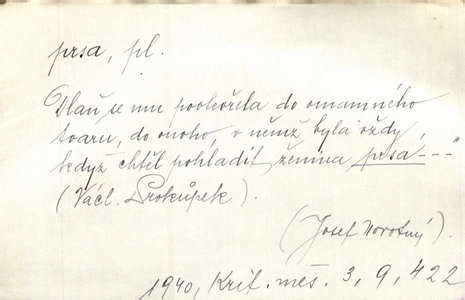 prsa, pl.
Dlaň se mu pootevřela do omamného
tvaru, do onoho, v němž byla vždy,
když chtěl pohladit ženina prsa - - -"
(Václ. Prokůpek).
(Josef Novotný).
1940, Krit. měs. 3, 9, 422